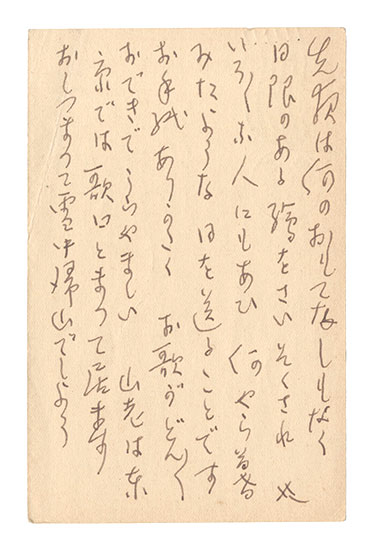 先夜は何のおもてなしもなく
日限のある稿をさいそくされ 又
いろんな人にもあひ 何やら
みたような日を送ることです
お手紙ありがたく お歌がどんどん
おできでうらやましい 山先は東
京では歌口とまつて居ます
おしつまつて雪中帰山でしよう